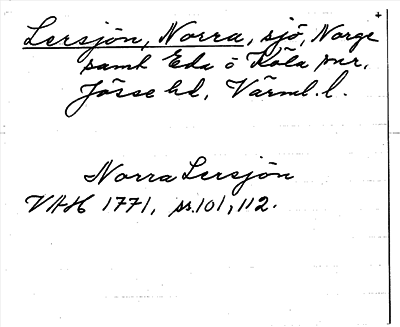 Lersjön, Norra, sjö, Norge
samt Eda o Köla snr,
Jösse hd, Värml. l.
Norra Lersjön
VAH 1771, ss. 101, 112.